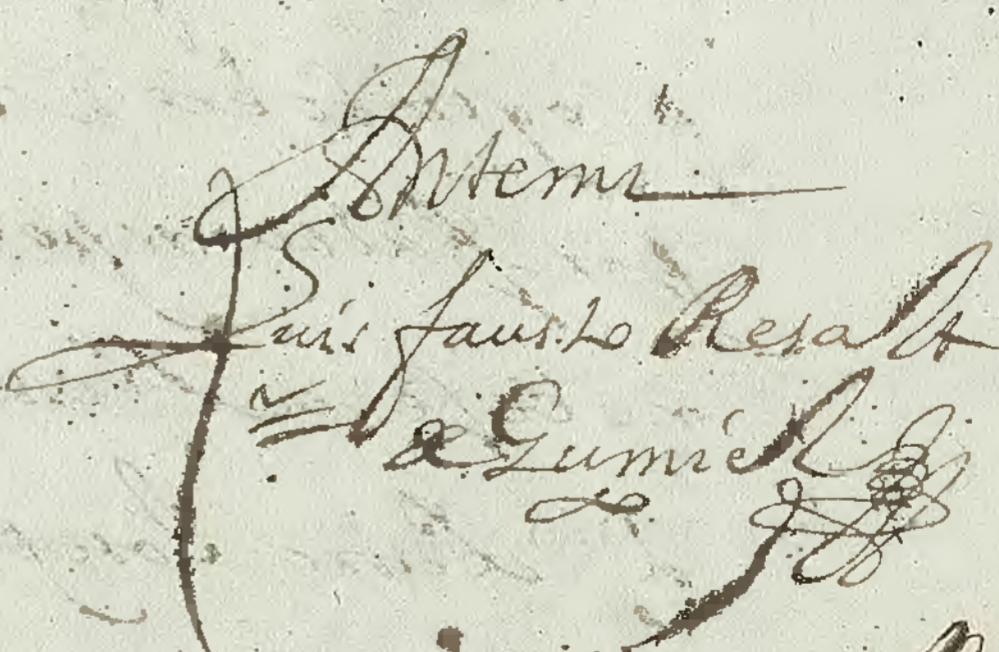 Antemi
Luis fausto Resalt
de Gumiel